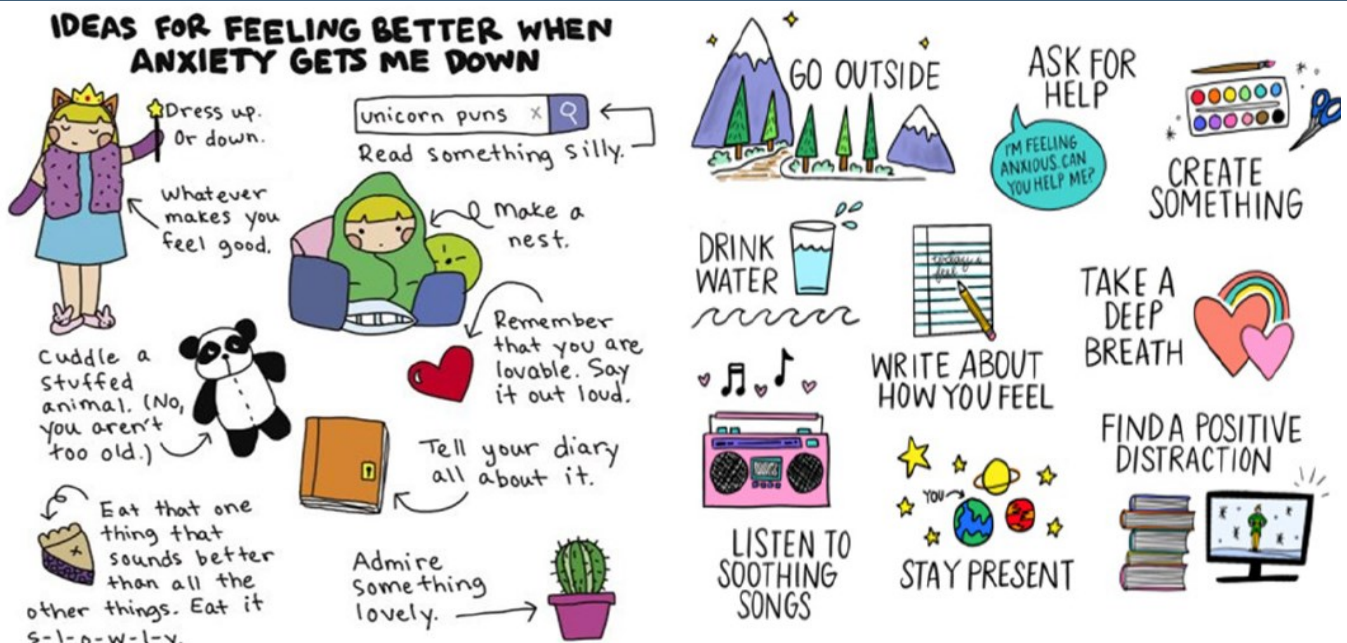 IDEAS FOR FEELING BETTER WHEN
ANXIETY GETS ME DOWN
Dress up.
Or down.
Whatever
makes you
feel good.
unicorn puns x
Read something silly.
Make a
nest.
Remember
that you are
lovable. Say
it out loud.
Cuddle a
stuffed
animal. (No,
you aren't
too old.)
Tell your diary
all about it.
Eat that one
thing that
sounds better
than all the
other things. Eat it
s-l-o-w-l-y.
Admire
something
lovely.
GO OUTSIDE
ASK FOR
HELP
I'M FEELING
ANXIOUS. CAN
YOU HELP ME?
CREATE
SOMETHING
DRINK
WATER
today i
feel
WRITE ABOUT
HOW YOU FEEL
TAKE A
DEEP
BREATH
LISTEN TO
SOOTHING
SONGS
YOU
STAY PRESENT
FIND A POSITIVE
DISTRACTION